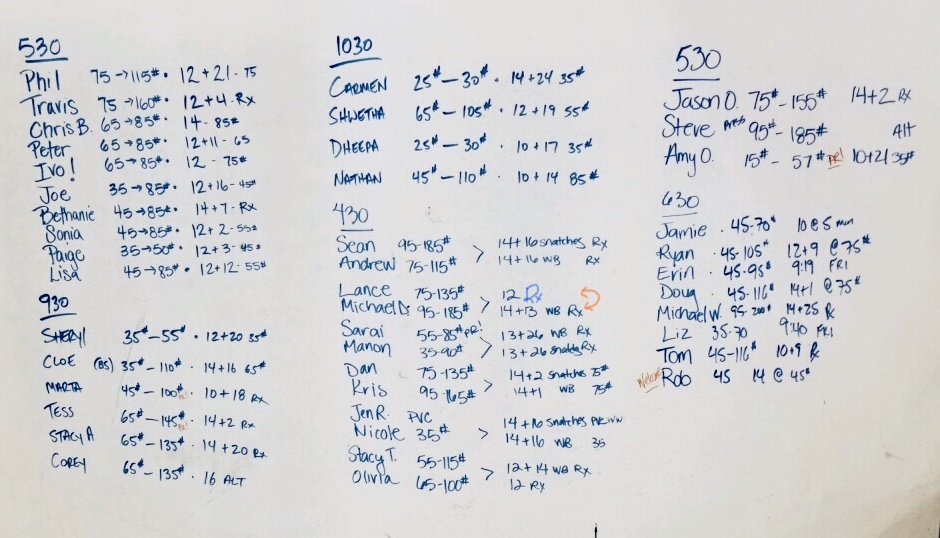 530
Phil 75→115# • 12+21 - 75
Travis 75→160# • 12+4 - Rx
Chris B. 65→85# • 14 - 85#
Peter 65→85# • 12+11 - 65
Ivo! 65→85# • 12 - 75#
Joe 35→85# • 12+16 - 45#
Bethanie 45→85# • 14+7 - Rx
Sonia 45→85# • 12+2 - 55#
Paige 35→50# • 12+3 - 45#
Lisa 45→85# • 12+12 - 55#
930
SHERYL 35# - 55# • 12+20 35#
CLOE (BS) 35# - 110# • 14+16 65#
MARTA 45# - 100# • 10+18 Rx
TESS 65# - 145# PR! • 14+2 Rx
STACY A 65# - 135# • 14+20 Rx
COREY 65# - 135# • 16 ALT
1030
CARMEN 25# - 30# • 14+24 35#
SHWETHA 65# - 105# • 12+19 55#
DHEEPA 25# - 30# • 10+17 35#
NATHAN 45# - 110# • 10+14 85#
430
Sean 95-185# > 14+16 snatches Rx
Andrew 75-115# 14+16 WB Rx
Lance 75-135# > 12 Rx
Michael D. 95-185# 14+13 WB Rx
Sarai 55-85# PR! > 13+26 WB Rx
Manon 35-90# 13+26 snatches Rx
Dan 75-135# > 14+2 snatches 75#
Kris 95-165# 14+1 WB 75#
Jen R. PVC > 14+16 snatches PVC
Nicole 35# 14+16 WB 35
Stacy T. 55-115# > 12+14 WB Rx
Olivia 65-100# 12 Rx
530
Jason O. 75# - 155# 14+2 Rx
Steve Press 95# - 185# Alt
Amy O. 15# - 57# PR! 10+21 35#
630
Jamie • 45-70# 10 @ 5 min
Ryan • 45-105# 12+9 @ 75#
Erin • 45-95# 9:19 FRI
Doug • 45-116# 14+1 @ 75#
Michael W. 95-200# 14+25 Rx
Liz 35-70 9:40 FRI
Tom 45-116# 10+9 Rx
Welcome Rob 45 14 @ 45#